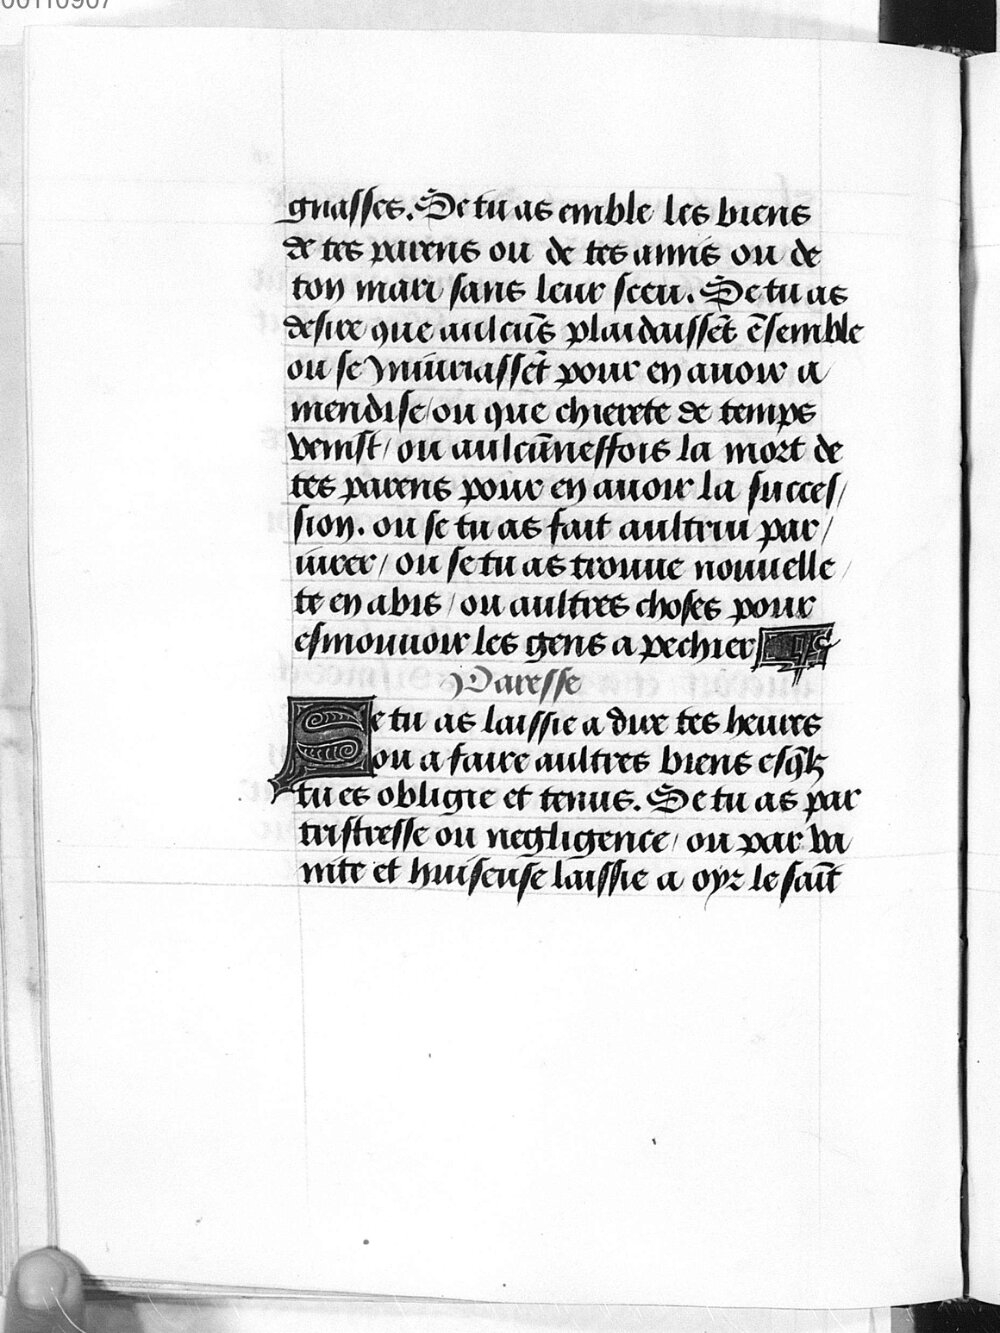 00110907
gnasses. Se tu as emble les biens
de tes parens ou de tes amis ou de
ton mari sans leur sceu. Se tu as
desire que aulcūs plaidaissēt ēsemble
ou se Iniuriassēt pour en auoir a
mendise/ou que chierete de temps
venist/ou aulcūneffois la mort de
tes parens pour en auoir la succes/
sion. ou se tu as fait aultrui par/
iurer/ou se tu as trouue nouuelle/
te en abis/ou aultres choses pour
esmouuoir les gens a pechier
Paresse
Se tu as laissie a dire tes heures
ou a faire aultres biens esq̄lz
tu es obligie et tenus. Se tu as par
tristresse ou negligence/ou par va
nite et huiseuse laissie a oyr le sait̄